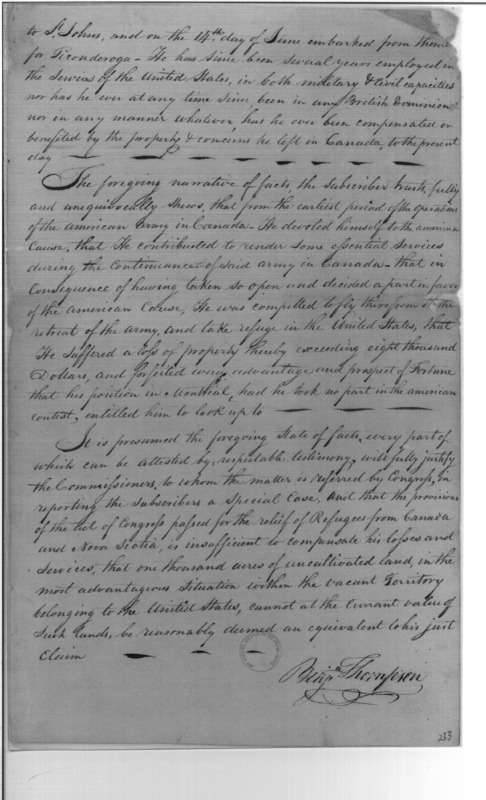 to St. Johns, and on the 14th. day of June embarked from thence
for Ticonderoga - He has since been several years employed in
the Service of the United States, in both military & civil capacities
nor has he ever at any time since been in any British Dominion,
nor in any manner whatever has he ever been compensated or
benefited by the property & concerns he left in Canada, to the present
day
The foregoing narrative of facts, the Subscriber trusts, fully
and unequivocally shews, that from the earliest period of the operations
of the american Army in Canada - He devoted himself to the american
Cause, that He contributed to render some essential Services
during the Continuance of said army in Canada - that in
Consequence of having taken so open and decided a part in favor
of the American Cause, He was compelled to fly therefrom at the
retreat of the army, and take refuge in the United States, that
He suffered a loss of property thereby exceeding eight thousand
Dollars, and forfeited every advantage and prospect of Fortune
that his position in Montreal, had he took no part in the american
contest, entitled him to look up to
It is presumed the foregoing State of facts, every part of
which can be attested by, respectable testimony, will fully justify
the Commissioners, to whom the matter is referred by Congress, in
reporting the Subscribers a Special Case, and that the provisions
of the act of Congress passed for the relief of Refugees from Canada
and Nova Scotia, is insufficient to compensate his losses and
Services, that one thousand acres of uncultivated land, in the
most advantageous Situation within the vacant Territory
belonging to the United States, cannot at the currant value of
Such Lands, be reasonably deemed an equivalent to his just
Claim
Benjn. Thompson
233